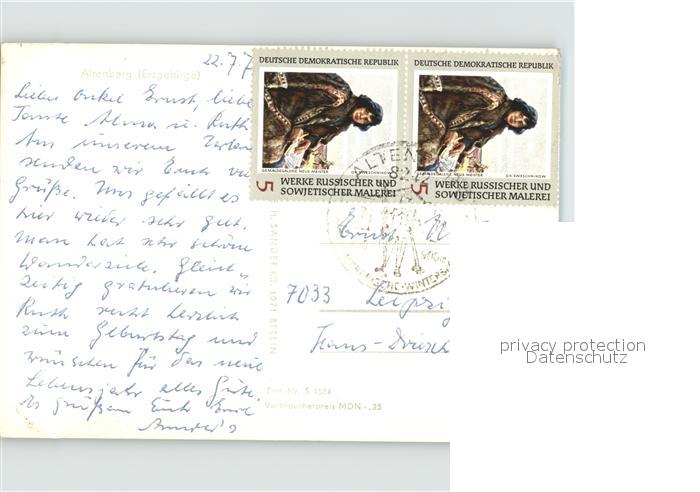 22.7.7
Altenberg (Erzgebirge)
Lieber Onkel Ernst, liebe
Tante Alma u. Ruth
Aus unserem Urlaub
senden wir Euch viele
Grüße. Uns gefällt es
hier wieder sehr gut.
Man hat sehr schöne
Wanderziele. Gleich-
zeitig gratulieren wir
Ruth recht herzlich
zum Geburtstag und
wünschen für das neue
Lebensjahr alles Gute.
Es grüßen Euch
H. SANDER KG, 1071 BERLIN
DEUTSCHE DEMOKRATISCHE REPUBLIK
GEMÄLDEGALERIE NEUE MEISTER
5 WERKE RUSSISCHER UND
SOWJETISCHER MALEREI
DEUTSCHE DEMOKRATISCHE REPUBLIK
GALERIE NEUE MEISTER
5 WERKE RUSSISCHER UND
SOWJETISCHER MALEREI
ALTEN
Ernst
7033 Leipzig
Hans-Driesch
Best.-Nr. S 1584
Verbraucherpreis MDN -,25
privacy protection
Datenschutz